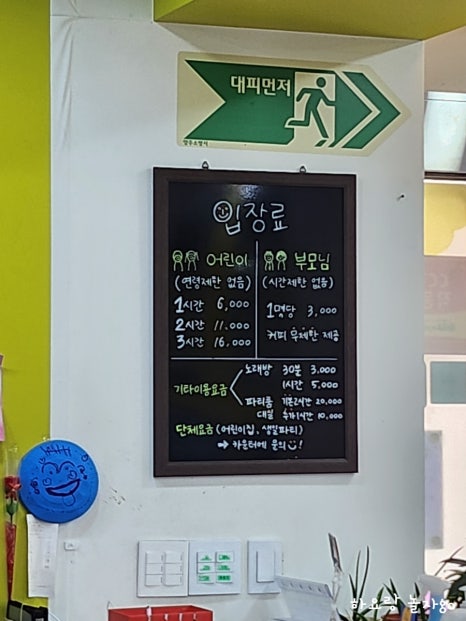 대피먼저
양주소방서
입장료
어린이
(연령제한 없음)
1시간 6,000
2시간 11,000
3시간 16,000
부모님
(시간제한 없음)
1명당 3,000
커피 무제한 제공
기타이용요금
노래방 30분 3,000
1시간 5,000
파티룸 기본2시간 20,000
대실 추가1시간 10,000
단체요금 (어린이집, 생일파티)
➡ 카운터에 문의 !
하요랑 놀자go